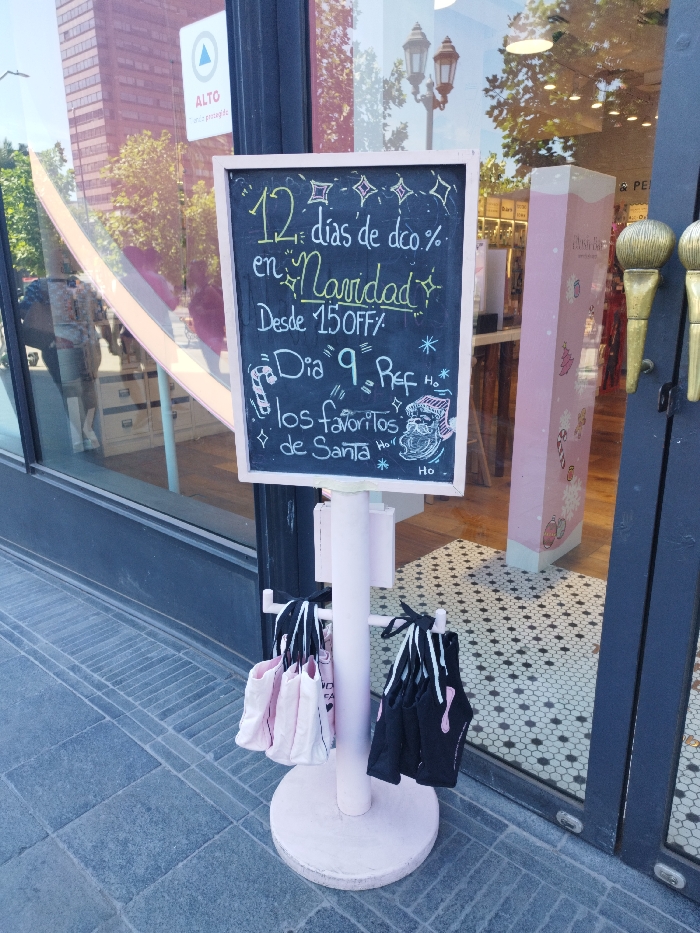 ALTO
12 días de dco.%
en Navidad
Desde 15OFF%
Dia 9 Ref
Ho
los favoritos
de Santa
Ho
Ho
& PE